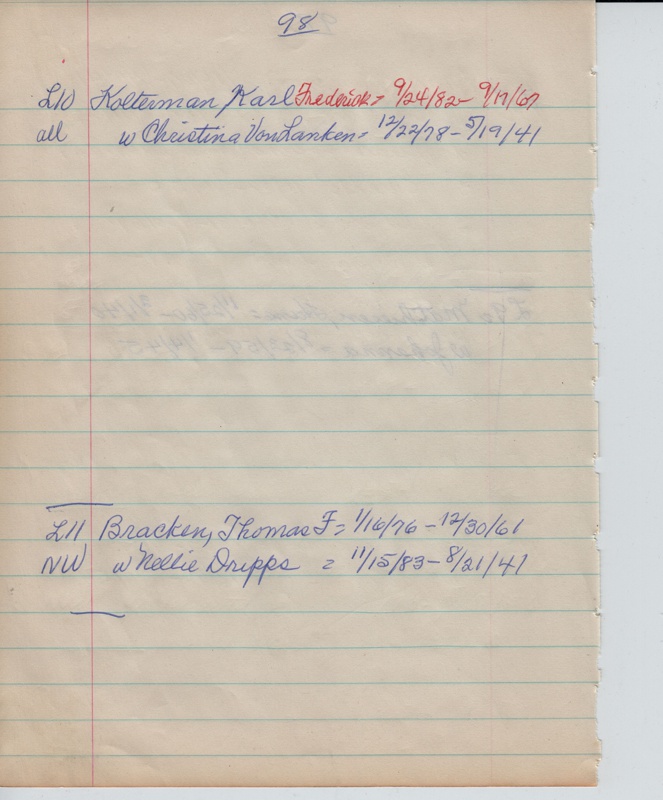 98
L10 Kolterman, Karl Frederick = 9/24/82 - 9/17/67
all w Christina VonLanken = 12/22/78 - 5/19/41
L11 Bracken, Thomas F = 1/16/76 - 12/30/61
NW w Nellie Dripps = 11/15/83 - 8/21/47